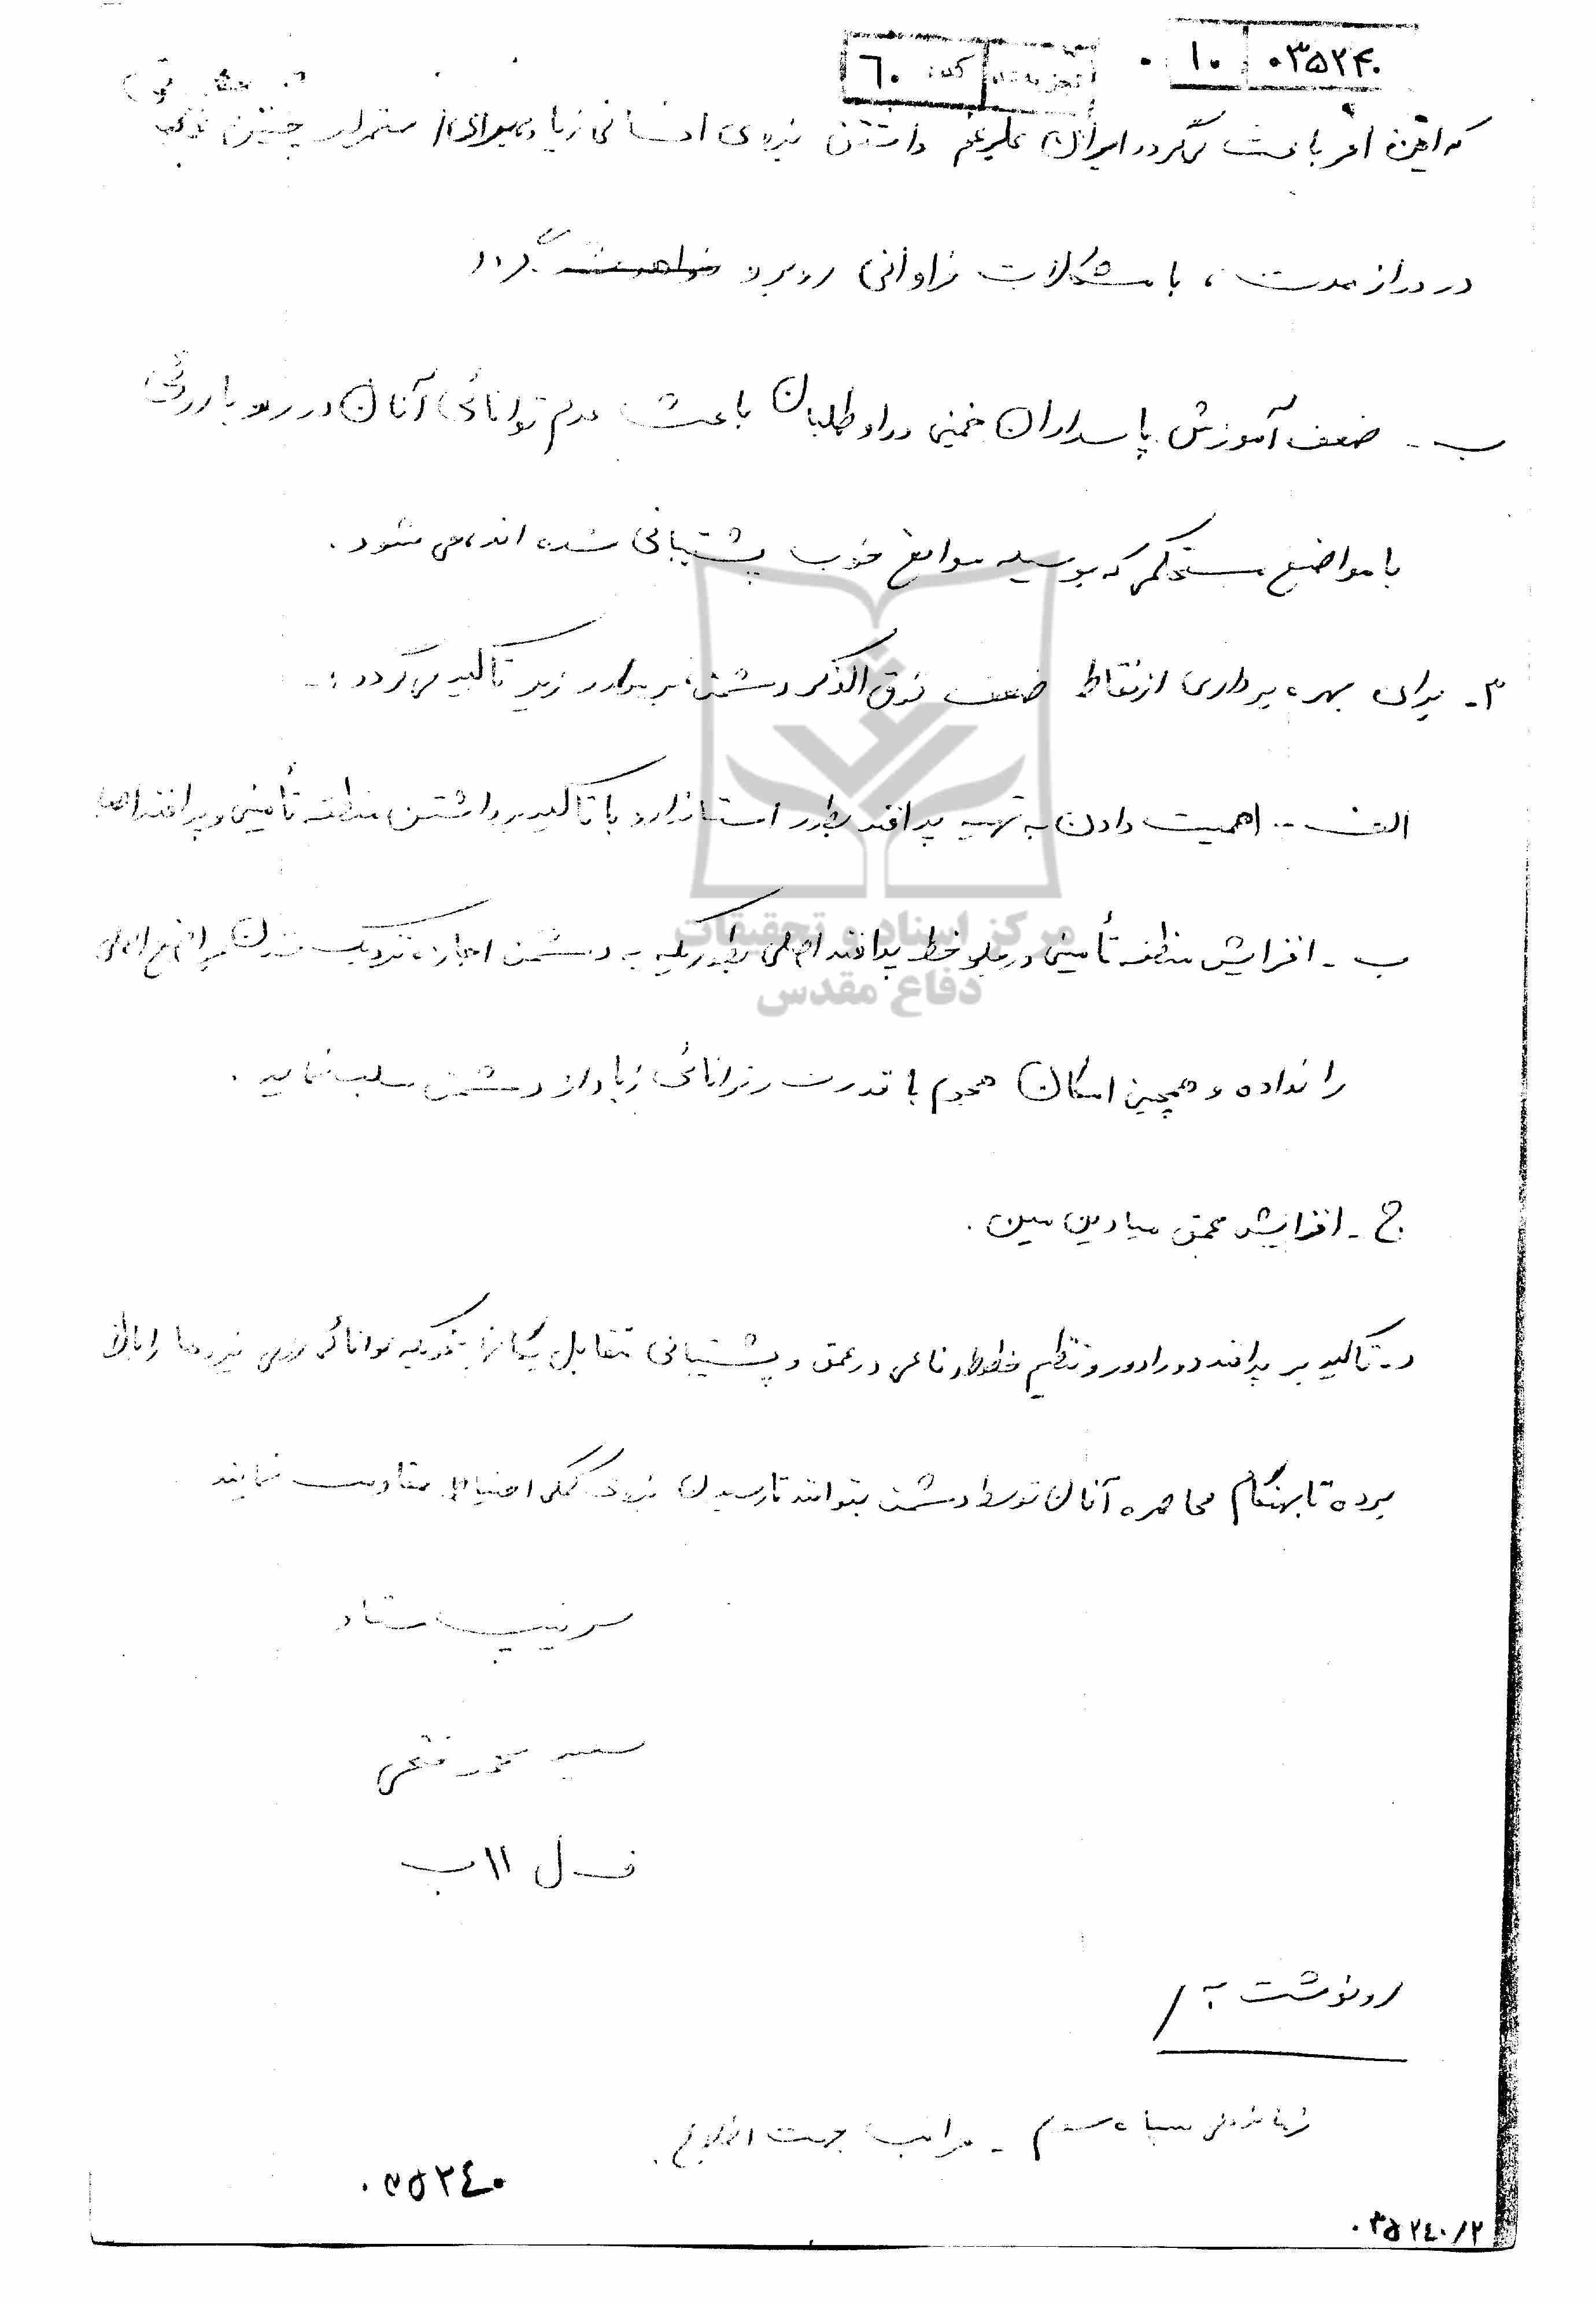 ۰۳۵۲۴۰ ۱۰ ۰
تجزیه شده کد: ٦٠
که این امر باعث میگردد ایران علیرغم داشتن نیروی انسانی زیاد برای استمرار چنین
در دراز مدت ، با مشکلات فراوانی روبرو گردد
ب - ضعف آموزش پاسداران خمینی و داوطلبان باعث عدم توانائی آنان در رویاروئی
با مواضع مستحکمی که بوسیله موانع خوب پشتیبانی شده اند، می شود .
۳- برای بهره برداری از نقاط ضعف فوق الذکر دشمن، بر موارد زیر تاکید می گردد :-
الف - اهمیت دادن به تهیه پدافند بطور استاندارد با تاکید بر داشتن منطقه تأمینی و پدافند اصلی
ب - افزایش منطقه تأمینی در جلو خط پدافند اصلی بطوریکه به دشمن اجازه نزدیک شدن به مواضع اصلی
را نداده و همچنین امکان هجوم با قدرت و توانائی زیاد از دشمن سلب نماید .
ج - افزایش عمق میادین مین .
د - تاکید بر پدافند دورادور و تنظیم خطوط دفاعی در عمق و پشتیبانی متقابل یگانها بنحویکه توانائی رزمی نیروها را بالا
برده تا بهنگام محاصره آنان توسط دشمن بتوانند تا رسیدن نیروی کمکی احتیاط مقاومت نمایند
سرتیپ ستاد
سعید محمد فتحی
ف ل ۱۱ پ
رونوشت به /
فرماندهی سپاه سوم - مراتب جهت اطلاع .
۰۳۵۲٤۰
۰۳۵۲٤۰/۲
مرکز اسناد و تحقیقات
دفاع مقدس